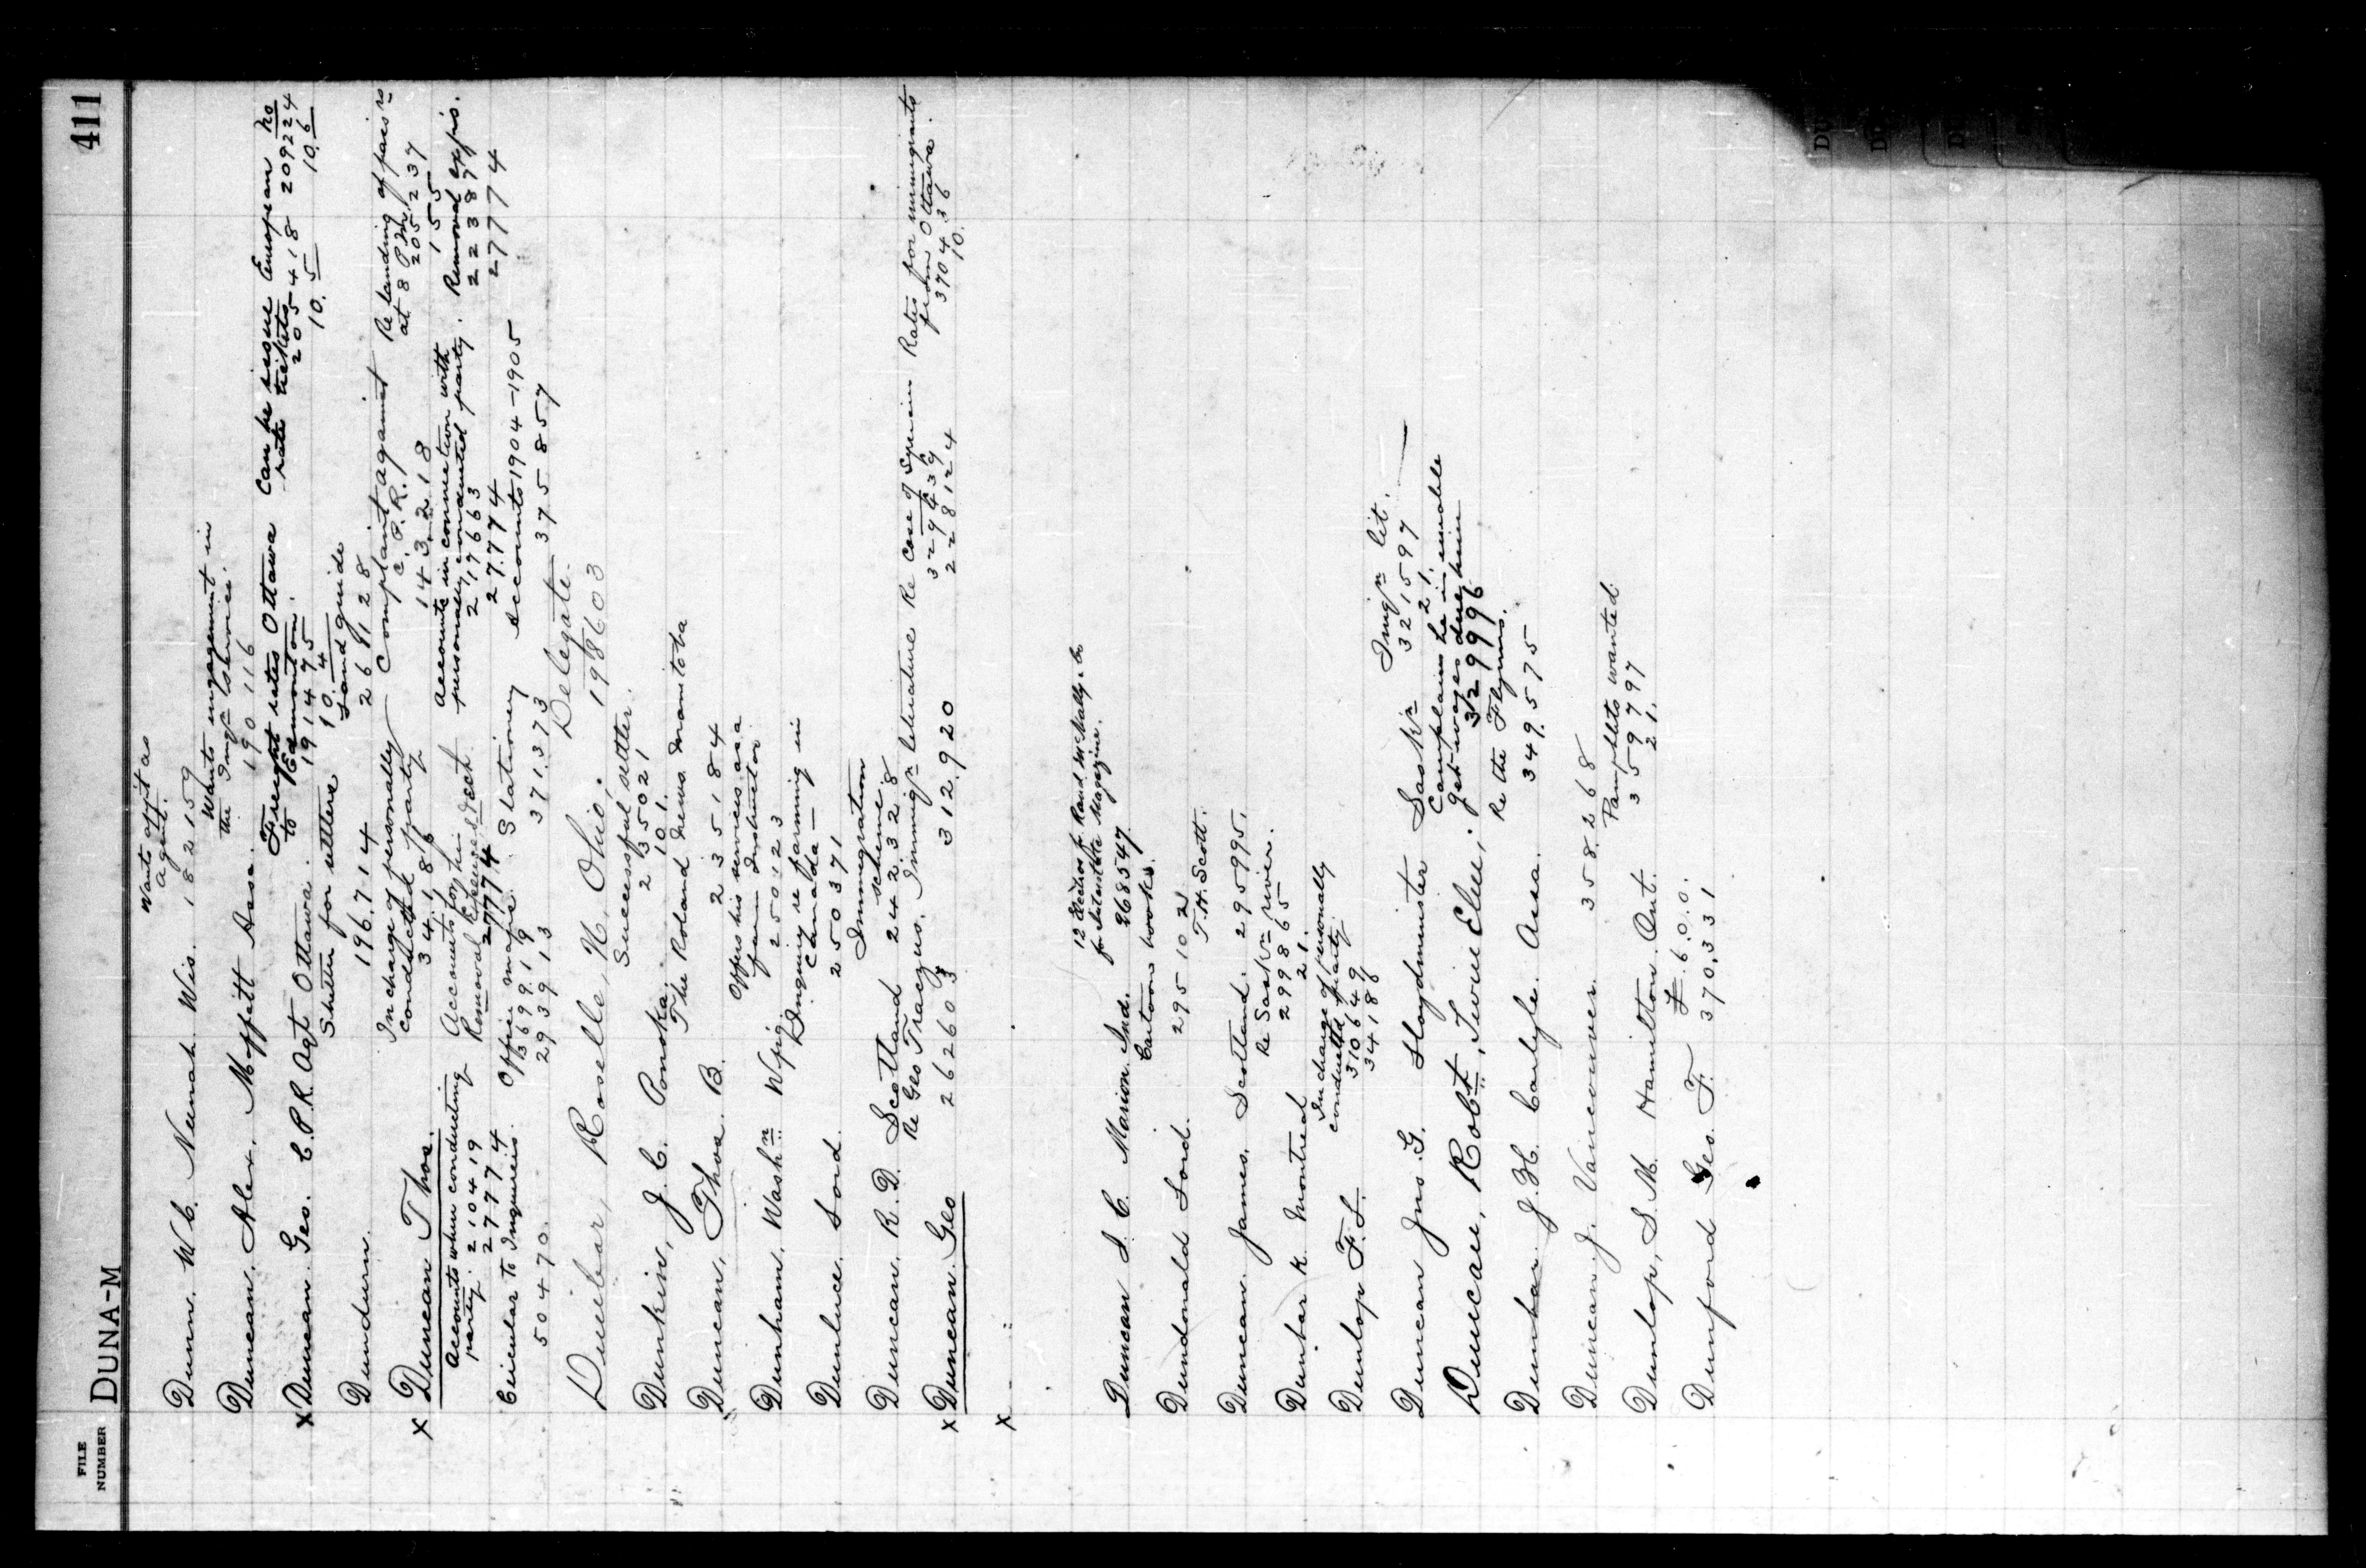 FILE NUMBER DUNA-M 411
Wants app't as agent.
Dunn. W. C. Neenah. Wis. 182159
Wants engagement in
the Imgn Service.
Duncan. Alex. Moffett Assa. 190116
Freight rates Ottawa to Edmonton. Can he issue European rate tickets
X Duncan. Geo. C.P.R. Agt Ottawa. 191475 205418 209224
10.4 10.5 10.6
Shelter for settlers Land guide
Dundurn. 196714 268128
In charge of personally conducted party Complaint against C.P.R. Re landing of pass'rs at 8 P.M.
X Duncan Thos. 34188 143218 205237
155
Accounts when conducting party. 210419
27774
Accounts for his Removal Expenses
27774
Accounts in connection with personally conducted party. 219663
27774
Removal exp's. 223887
27774
Circular to Inquireies.
50470
Office
369919
293913
Stationery
371373
accounts 1904-1905
375857
Delegate.
Dunbar, Roselle, N. Ohio. 198603
Successful settler.
Dunkin, J. C. Ponoka. 235021
101.
The Roland News Manitoba
Duncan, Thos. B. 235184
Offers his services as a farm Instructor
Dunham. Washn. Wpig. 250123
Inquiry re farming in Canada—
Dunluce. Lord. 250371
Immigration scheme.
Duncan. R. D. Scotland 242328
Re Geo Traczus. Immign literature Re Case of Rates for immigrants from Ottawa.
X Duncan. Geo 262603 312920 329439 370436
228124 10.
X - - :
12 Electros for Rand McNally & Co
for Interstate Magazine.
Duncan L. C. Marion. Ind. 268547
Cartoon books.
Dundonald Lord. 295102
T.H. Scott.
Duncan. James. Scotland. 295995.
Re Saskn river.
Dunbar R. Montreal 299865
21.
In charge of personally conducted party
Dunlop F.L. 310649
34188
Imign lit.
Duncan Jno. G. Lloydminster Saskn 321597
21.
Complains he is unable
get wages due him
Duncan, Robt., Twin Elm. 329996
Re the Flynns.
Dunbar. J.H. Carlyle. Assa. 349575
Duncan. J. Vancouver. 358268
Pamphlets wanted.
Dunlop, S. M. Hamilton. Ont. 359797
21.
£ 6.0.0.
Dunford Geo. F. 370331